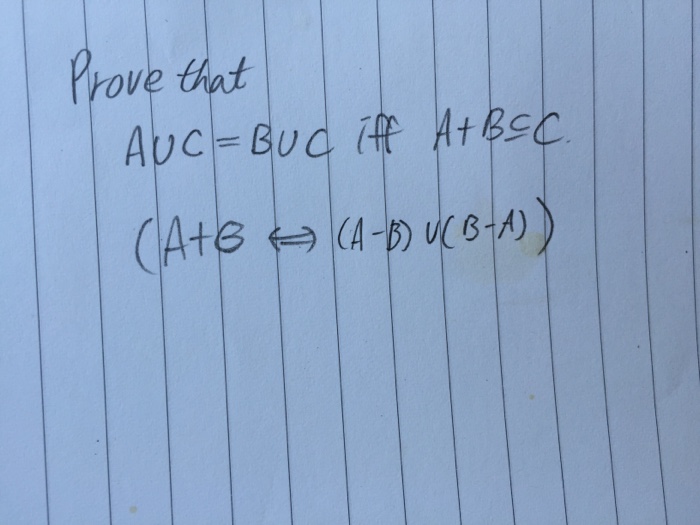 Prove that
A∪C = B∪C iff A+B⊆C.
(A+B ⇔ (A-B) ∪ (B-A))